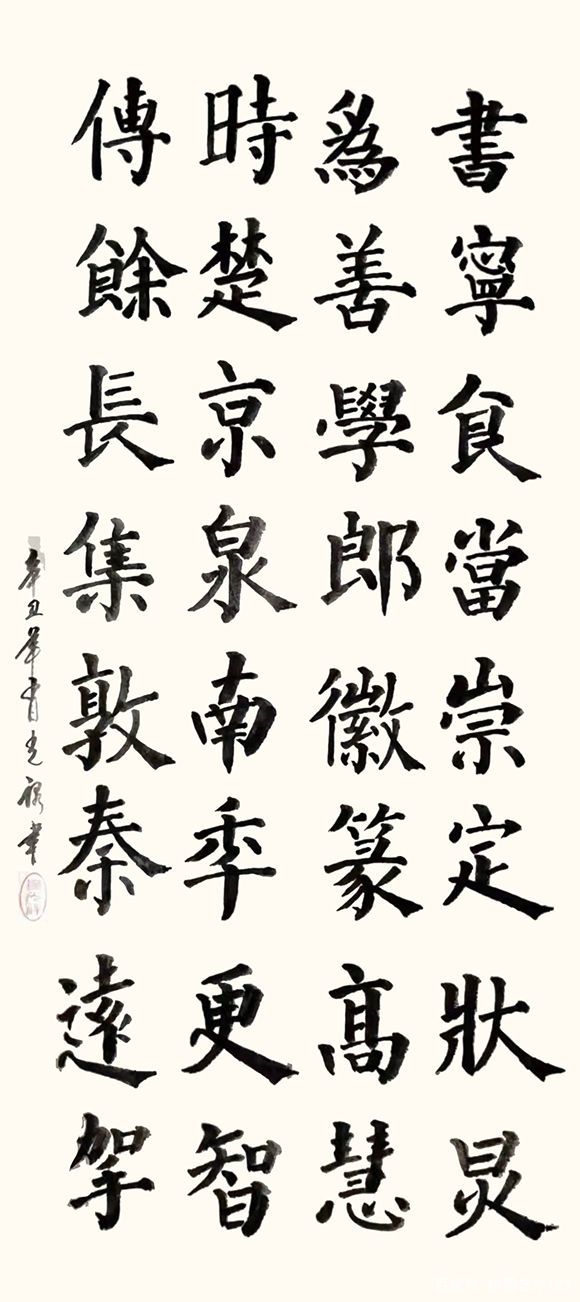 書寧食當崇定狀炅
爲善學郎徽篆髙慧
時楚京泉南季更智
傳餘長集敦秦遠
辛丑年光書